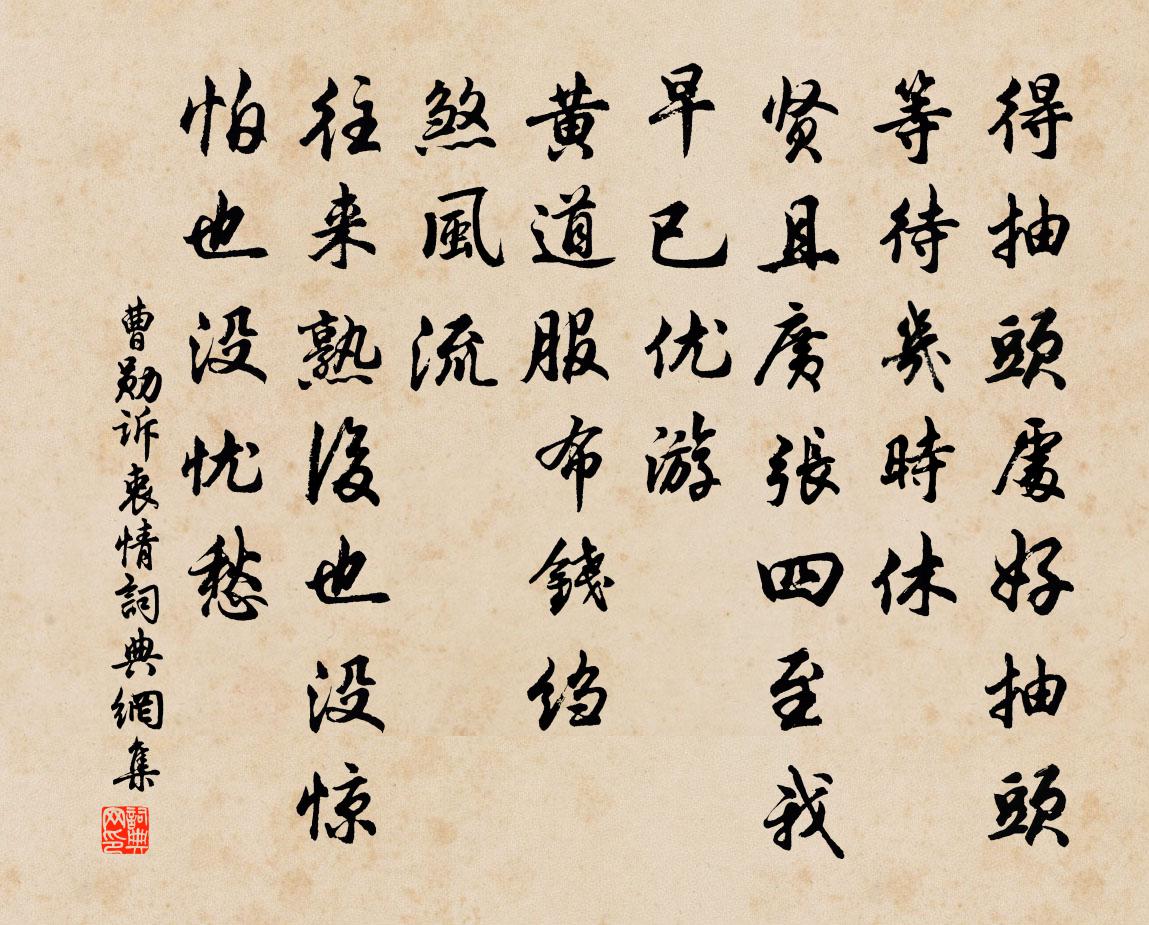 得抽頭處好抽頭
等待幾時休
贤且廣張四至我
早已优游
黄道服布錢绉
煞風流
往来熟後也没惊
怕也没忧愁
曹勋诉衷情詞典網集
詞典网印